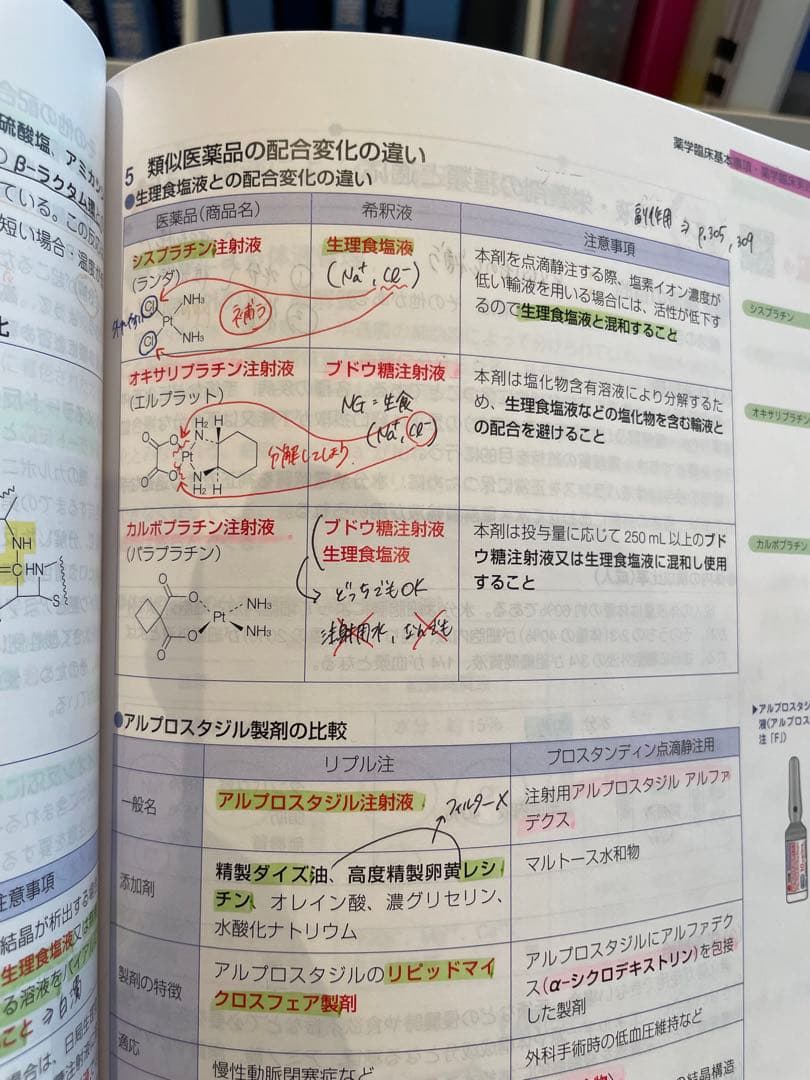 硫酸塩、アミカシ
β-ラクタム環と
ている。この反
短い場合:温度か
薬学臨床基本事項・薬学臨床実
5 類似医薬品の配合変化の違い
●生理食塩液との配合変化の違い
副作用⇒p.305, 309
医薬品(商品名) 希釈液 注意事項
シスプラチン注射液
(ランダ)
Cl NH3
Pt
Cl NH3
補う
生理食塩液
(Na⁺, Cl⁻)
本剤を点滴静注する際、塩素イオン濃度が
低い輸液を用いる場合には、活性が低下す
るので生理食塩液と混和すること
オキサリプラチン注射液
(エルプラット)
O O H2 H
N
Pt
O O N
H2 H
分解してしまう
ブドウ糖注射液
NG=生食
(Na⁺, Cl⁻)
本剤は塩化物含有溶液により分解するた
め、生理食塩液などの塩化物を含む輸液と
の配合を避けること
カルボプラチン注射液
(パラプラチン)
O
O NH3
Pt
O NH3
O
ブドウ糖注射液
生理食塩液
→どっちでもOK
注射用水、なんでも
本剤は投与量に応じて250 mL以上のブド
ウ糖注射液又は生理食塩液に混和し使用
すること
●アルプロスタジル製剤の比較
リプル注 プロスタンディン点滴静注用
一般名 アルプロスタジル注射液 注射用アルプロスタジル アルファ
デクス
フィルター×
添加剤 精製ダイズ油、高度精製卵黄レシ
チン、オレイン酸、濃グリセリン、
水酸化ナトリウム
マルトース水和物
製剤の特徴 アルプロスタジルのリピッドマイ
クロスフェア製剤
アルプロスタジルにアルファデク
ス(α-シクロデキストリン)を包接
した製剤
適応 慢性動脈閉塞症など 外科手術時の低血圧維持など
の結晶構造
シスプラチン
オキサリプラチン
カルボプラチン
▶アルプロスタジ
液(アルプロス
注「F」)
NH
C HN
S
注意事項
結晶が析出する場
生理食塩液又は
る溶液をバイアル
こと
場合は、日局生理